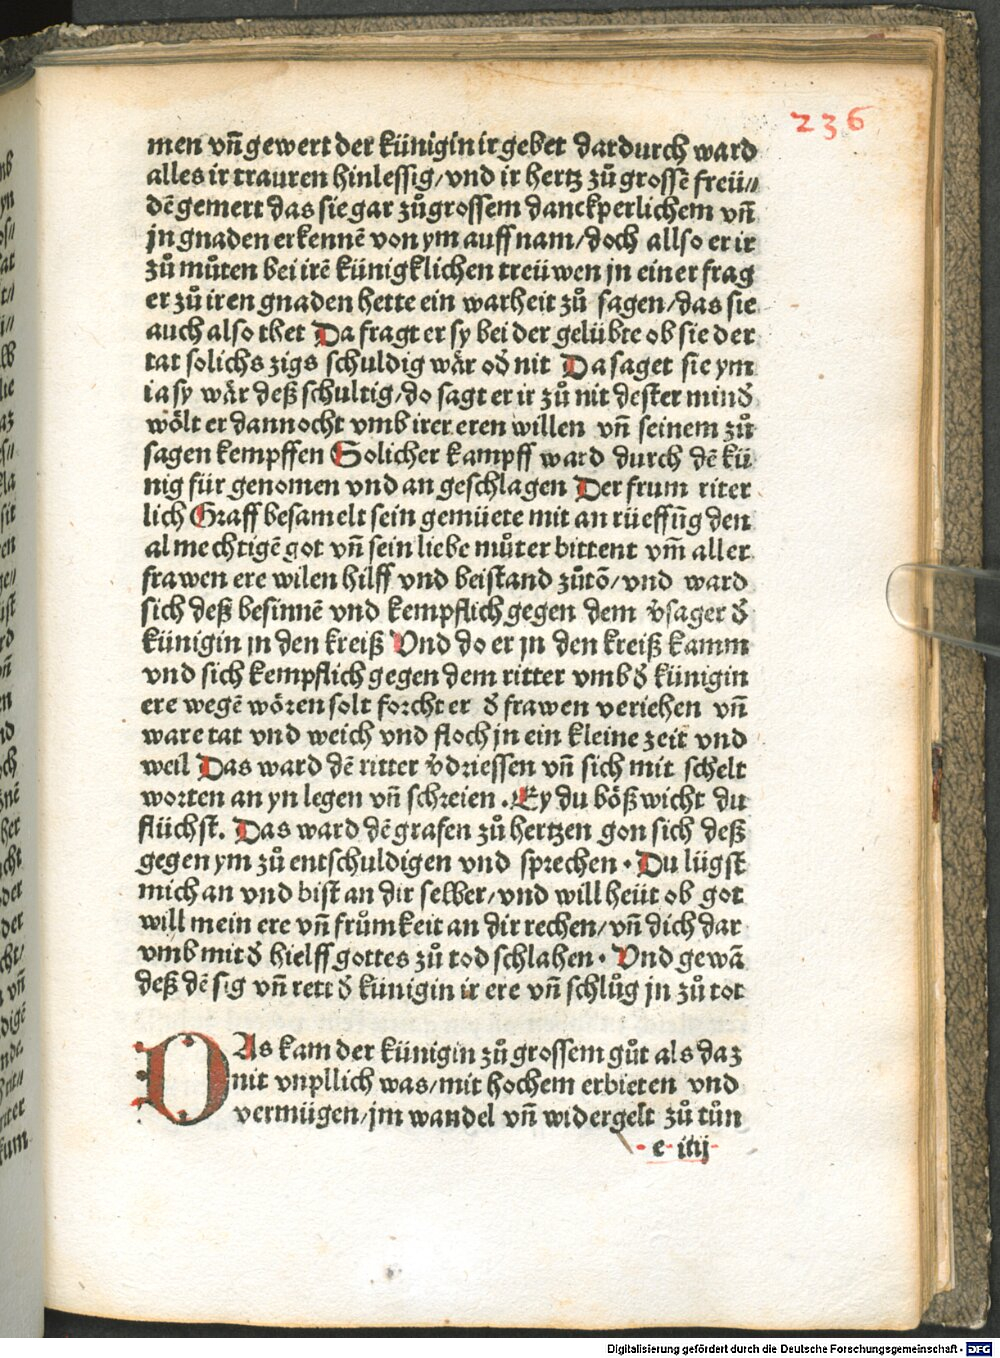 236
men vn̄ gewert der künigin ir gebet dardurch ward
alles ir trauren hinlessig/ vnd ir hertz zů grossē freü⸗
dē gemert das sie gar zů grossem danckperlichem vn̄
jn gnaden erkennē von ym auff nam/ doch allso er ir
zů můten bei irē künigklichen treüwen jn einer frag
er zů iren gnaden hette ein warheit zů sagen/ das sie
auch also thet Da fragt er sy bei der gelübte ob sie der
tat solichs zigs schuldig wår od̄ nit Da saget sie ym
ia sy wår deß schultig/ do sagt er ir zů nit dester mind̄
wölt er dannocht vmb irer eren willen vn̄ seinem zů
sagen kempffen Solicher kampff ward durch dē kü
nig für genomen vnd an geschlagen Der frum riter
lich Graff besamelt sein gemüete mit an rüeffūg den
almechtigē got vn̄ sein liebe můter bittent vm̄ aller
frawen ere wilen hilff vnd beistand zůtō/ vnd ward
sich deß besinnē vnd kempflich gegen dem v̄sager d̄
künigin jn den kreiß Vnd do er jn den kreiß kamm
vnd sich kempflich gegen dem ritter vmb d̄ künigin
ere wegē wören solt forcht er d̄ frawen veriehen vn̄
ware tat vnd weich vnd floch jn ein kleine zeit vnd
weil Das ward dē ritter v̄driessen vn̄ sich mit schelt
worten an yn legen vn̄ schreien . Ey du bößwicht du
flüchst. Das ward dē grafen zů hertzen gon sich deß
gegen ym zů entschuldigen vnd sprechen · Du lügst
mich an vnd bist an dir selber/ vnd will heüt ob got
will mein ere vn̄ frůmkeit an dir rechen/ vn̄ dich dar
vmb mit d̄ hielff gottes zů tod schlahen · Vnd gewā
deß dē sig vn̄ rett d̄ künigin ir ere vn̄ schlůg jn zů tot
DAs kam der künigin zů grossem gůt als daz
nit vnpllich was/ mit hochem erbieten vnd
vermügen/ jm wandel vn̄ widergelt zů tůn
e iiij
Digitalisierung gefördert durch die Deutsche Forschungsgemeinschaft - DFG